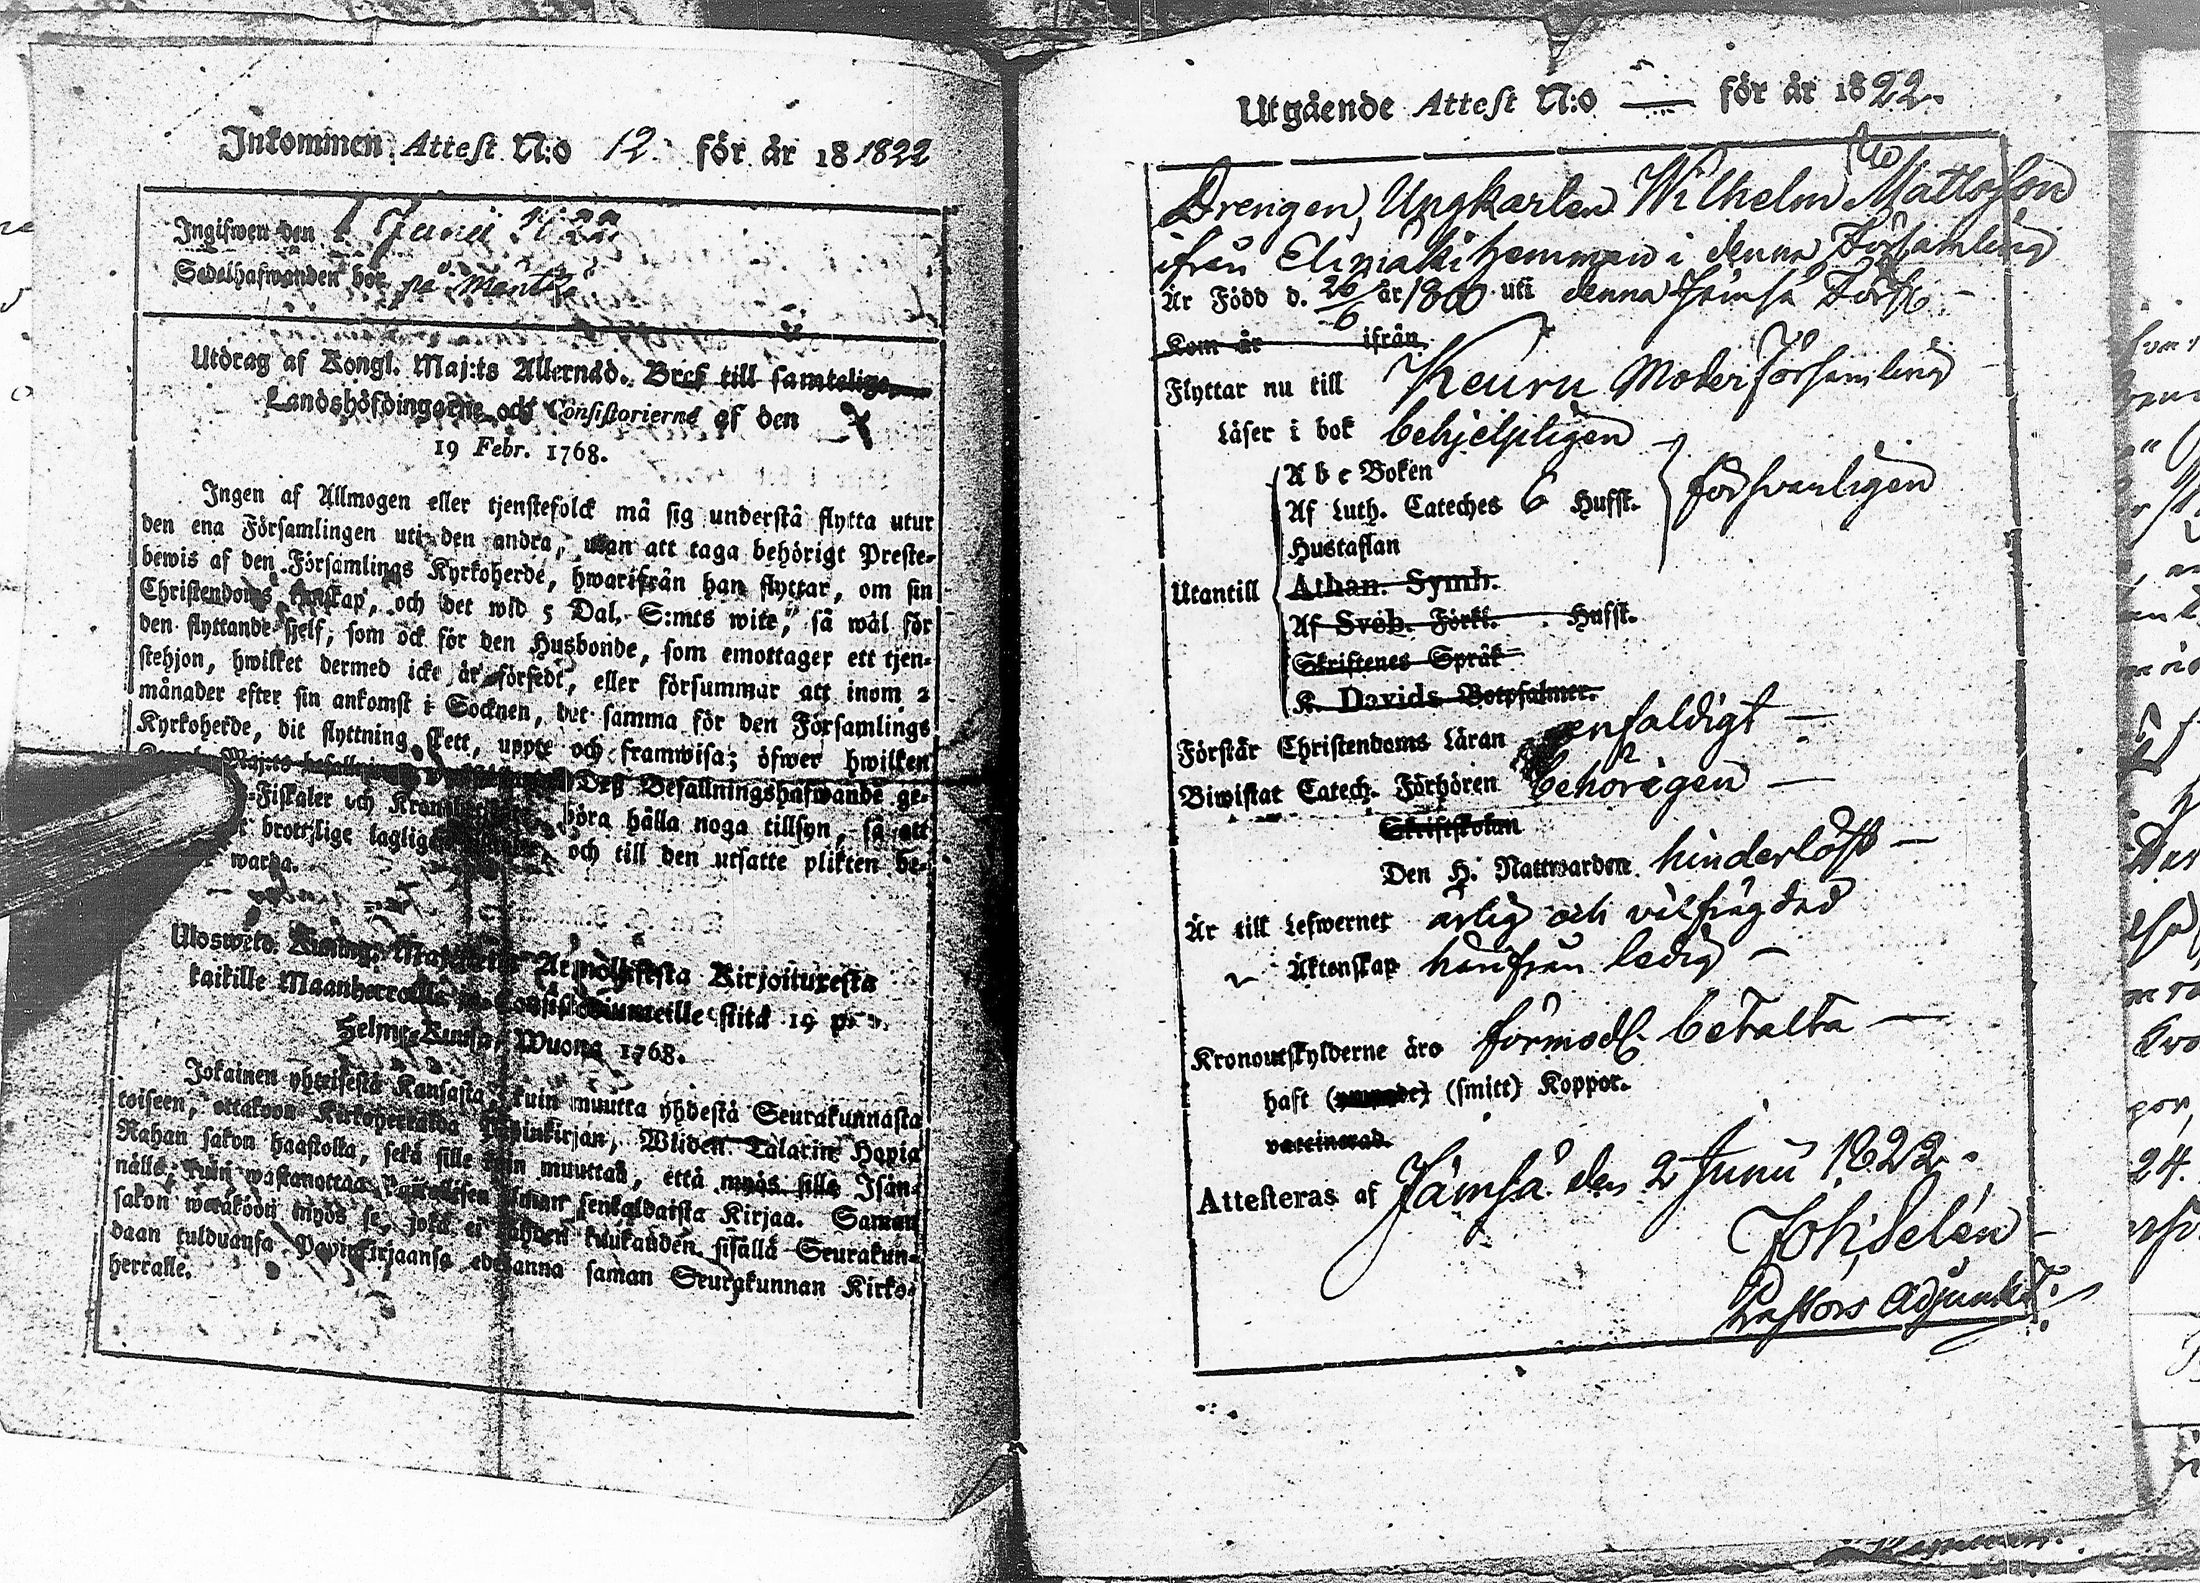 Inkommen Attest N:o 12. för år 18 1822
Ingifwen den 1 Junii 1822
Sedelhafwanden bor på Mänttä
Utdrag af Kongl. Maj:ts Allernåd. Bref till samtelige
Landshöfdingarne och Consistorierne af den
19 Febr. 1768.
Ingen af Allmogen eller tjenstefolck må sig understå flytta utur
den ena Församlingen uti den andra, utan att taga behörigt Preste-
bewis af den Församlings Kyrkoherde, hwarifrån han flyttar, om sin
Christendoms kunskap, och det wid 5 Dal. S:mts wite, så wäl för
den flyttande sjelf, som ock för den Husbonde, som emottager ett tjen-
stehjon, hwilket dermed icke är försedt, eller försummar att inom 2
månader efter sin ankomst i Socknen, det samma för den Församlings
Kyrkoherde, dit flyttning skett, uppte och framwisa; öfwer hwilken
Maj:ts befallning Deß Befallningshafwande ge-
Fiskaler och böra hålla noga tillsyn, så att
brottslige lagligen och till den utsatte plikten be-
warda.
Uloswetd. Armollisesta Kirjoituxesta
kaikille Maanherroille ja Consistoriumeille siitä 19 p.
Helme-Kuusa, Wuona 1768.
Jokainen yhteisestä Kansasta, kuin muutta yhdestä Seurakunnasta
toiseen, ottakoon Kirkoherralda Papinkirjan, Wiiden Talarin Hopia
Rahan sakon haastolla, sekä sille kuin muuttaa, että myös sille Isän-
nälle, kuin wastanottaa Palkollisen ilman senkaldaista Kirjaa. Saman
sakon weteköön myös se, joka ei kahden kuukauden sisällä Seurakun-
daan tulduansa Papinkirjaansa edesanna saman Seurakunnan Kirko-
herralle.
Utgående Attest N:o — för år 1822.
Drengen, Ungkarlen Wilhelm Mattsson
ifrån Elimäki hemman i denna Församling
Är Född d. 26/6 år 1800 uti denna Jämsä Förs.
Kom år ifrån
Flyttar nu till Keuru Moderförsamling
Läser i bok behjelpligen
A b c Boken
Af Luth. Cateches 6 Hufst. försvarligen
Hustaflan
Utantill Athan. Symb.
Af Sveb. Förkl. Hufst.
Skriftenes Språk
K. Davids Botpsalmer.
Förstår Christendoms Läran enfaldigt
Biwistat Catech. Förhören behörigen
Skriftskolan
Den H. Nattwarden hinderlöst
Är till Lefwernet ärlig och välfrägdad
Äktenskap härifrån ledig
Kronoutskylderne äro förmodl. betalta
haft (smitt) Koppor.
vaccinerad.
Attesteras af Jämsä den 2 Junii 1822.
Joh: Selén
Pastors Adjunkt.